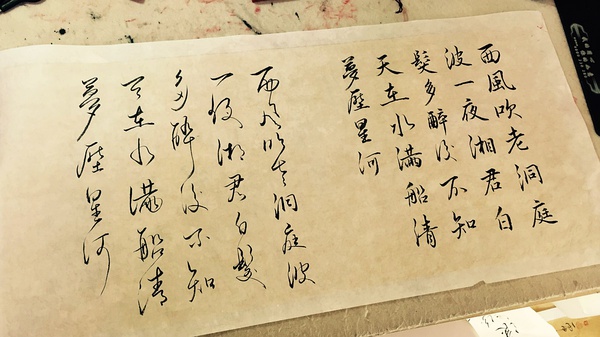 西風吹老洞庭
波一夜湘君白
髮多醉後不知
天在水滿船清
夢壓星河
西風吹老洞庭波
一夜湘君白髮
多醉後不知
天在水滿船清
夢壓星河